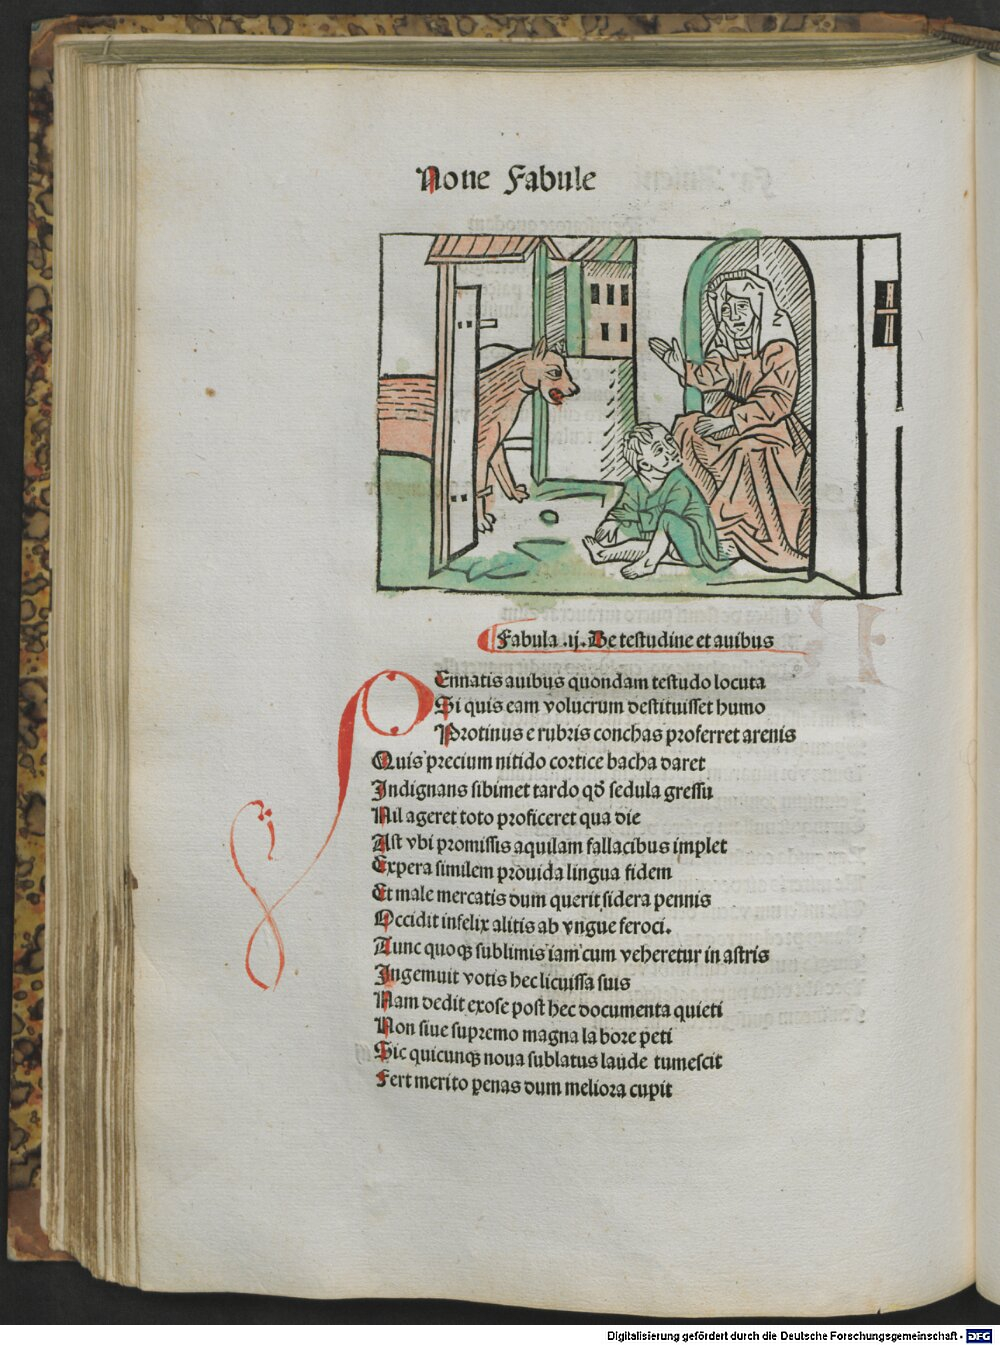 None Fabule
Fabula .ij. De testudine et auibus
PEnnatis auibus quondam testudo locuta
Si quis eam volucrum destituisset humo
Protinus e rubris conchas proferret arenis
Quis precium nitido cortice bacha daret
Indignans sibimet tardo qđ sedula gressu
Nil ageret toto proficeret qua die
Ast vbi promissis aquilam fallacibus implet
Expera similem prouida lingua fidem
Et male mercatis dum querit sidera pennis
Occidit infelix alitis ab vngue feroci.
Tunc quoqꝫ sublimis iam cum veheretur in astris
Ingemuit votis hec licuissa suis
Nam dedit exose post hec documenta quieti
Non siue supremo magna la bore peti
Sic quicunqꝫ noua sublatus laude tumescit
Fert merito penas dum meliora cupit
Digitalisierung gefördert durch die Deutsche Forschungsgemeinschaft - DFG